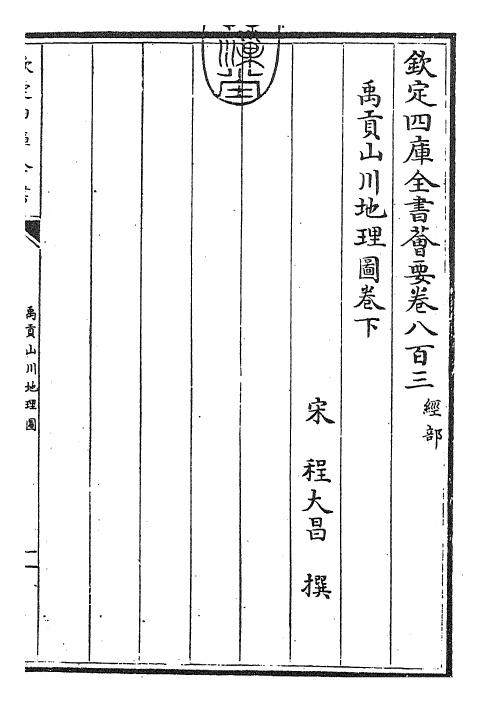 欽定四庫全書薈要卷八百三 經部
禹貢山川地理圖卷下
宋 程大昌 撰
欽定四庫全書
禹貢山川地理圖
一